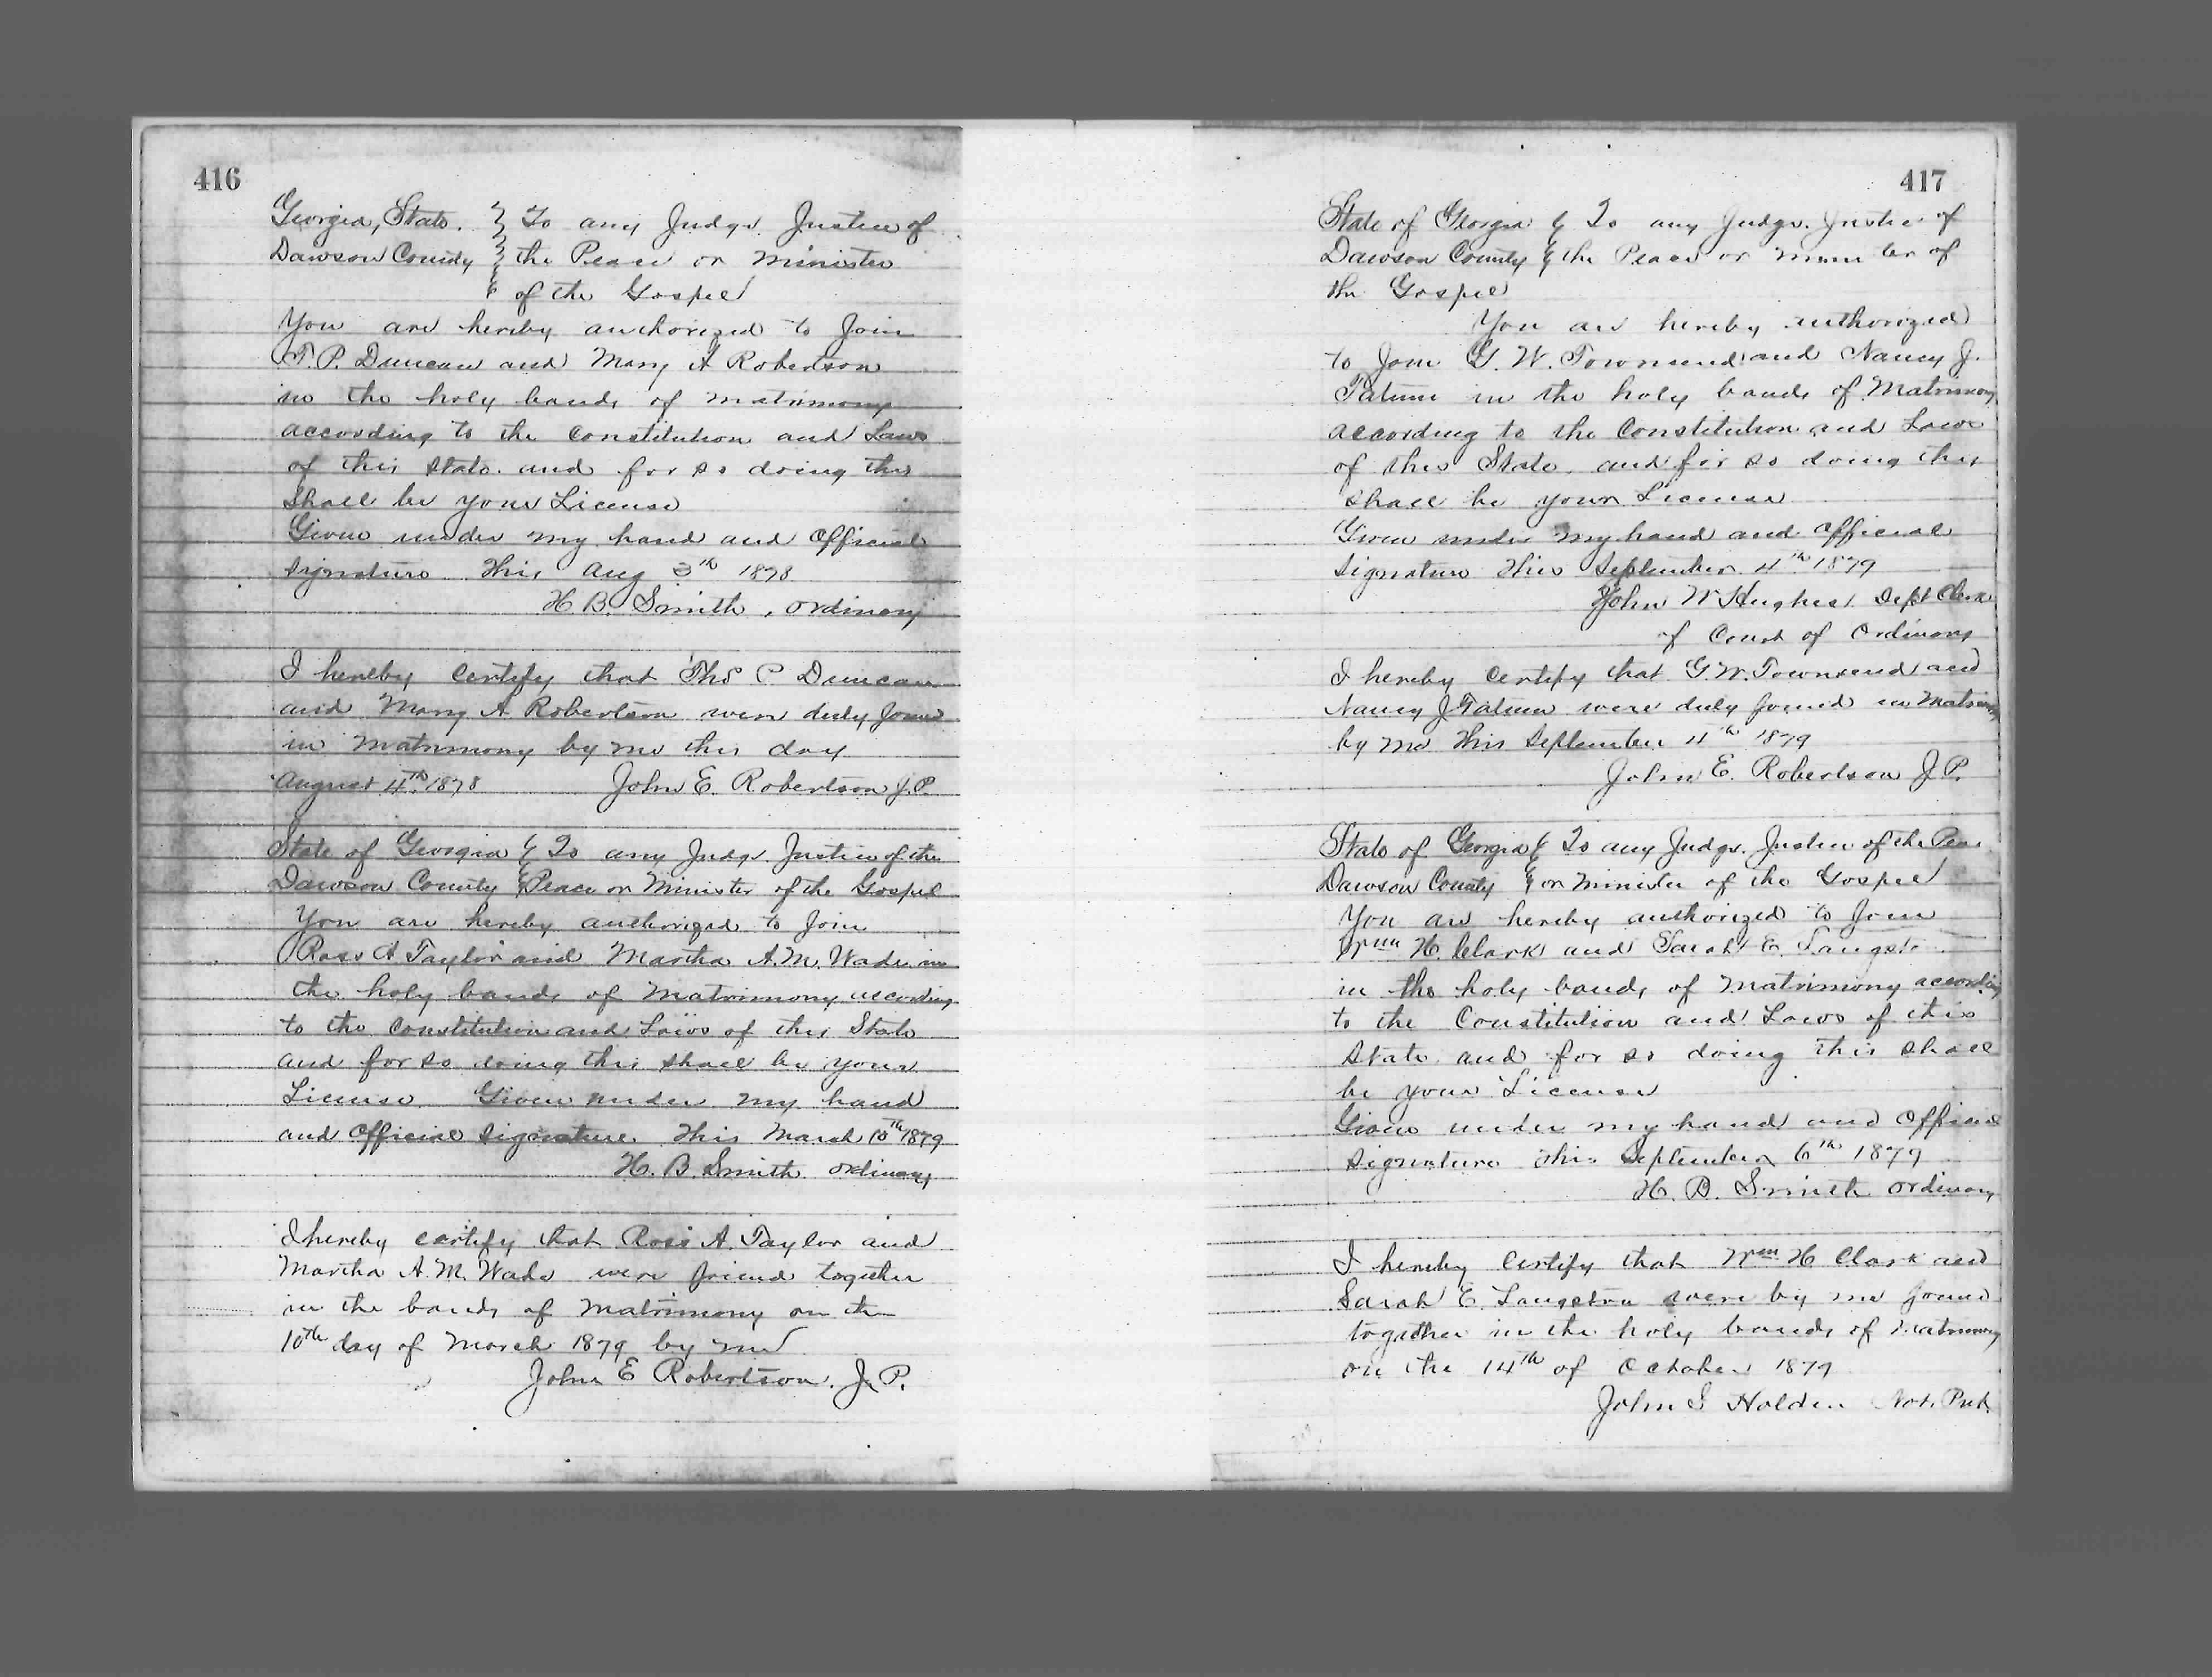 416
Georgia, State. } To any Judge. Justice of
Dawson County } the Peace or Minister
} of the Gospel
You are hereby authorized to Join
T. P. Duncan and Mary A Robertson
in the holy bands of matrimony
according to the Constitution and Laws
of this State. and for so doing this
Shall be your License
Given under my hand and Official
Signature This Aug 3th 1878
H. B. Smith, Ordinary
I hereby Certify that Thos P. Duncan
and Mary A Robertson were duly Joined
in Matrimony by me this day
August 4th 1878 John E. Robertson J.P.
State of Georgia } To any Judge. Justice of the
Dawson County } Peace or Minister of the Gospel
You are hereby authorized to Join
Ross A Taylor and Martha A.M. Wade in
the holy bands of Matrimony according
to the Constitution and Laws of this State
and for so doing this shall be your
License. Given under my hand
and Official Signature. This March 10th 1879
H. B. Smith Ordinary
I hereby certify that Ross A. Taylor and
Martha A.M. Wade were joined together
in the bands of Matrimony on the
10th day of March 1879 by me
John E Robertson. J.P.
417
State of Georgia } To any Judge. Justice of
Dawson County } the Peace or Minister of
the Gospel
You are hereby authorized
to Join G. W. Townsend and Nancy J.
Tatum in the holy bands of Matrimony
according to the Constitution and Laws
of this State. and for so doing this
shall be your License
Given under my hand and Official
Signature This September 4th 1879
John W Hughes. Dept Clerk
of Court of Ordinary
I hereby Certify that G. W. Townsend and
Nancy J Tatum were duly joined in Matrimony
by me This September 4th 1879
John E. Robertson J P.
State of Georgia } To any Judge. Justice of the Peace
Dawson County } or Minister of the Gospel
You are hereby authorized to Join
Wm H. Clark and Sarah E. Langst
in the holy bands of Matrimony according
to the Constitution and Laws of this
State and for so doing this shall
be your License
Given under my hand and Official
Signature this September 6th 1879
H. B. Smith Ordinary
I hereby Certify that Wm H Clark and
Sarah E. Langston were by me joined
together in the holy bands of Matrimony
on the 14th of October 1879
John S Holden Not. Pub.